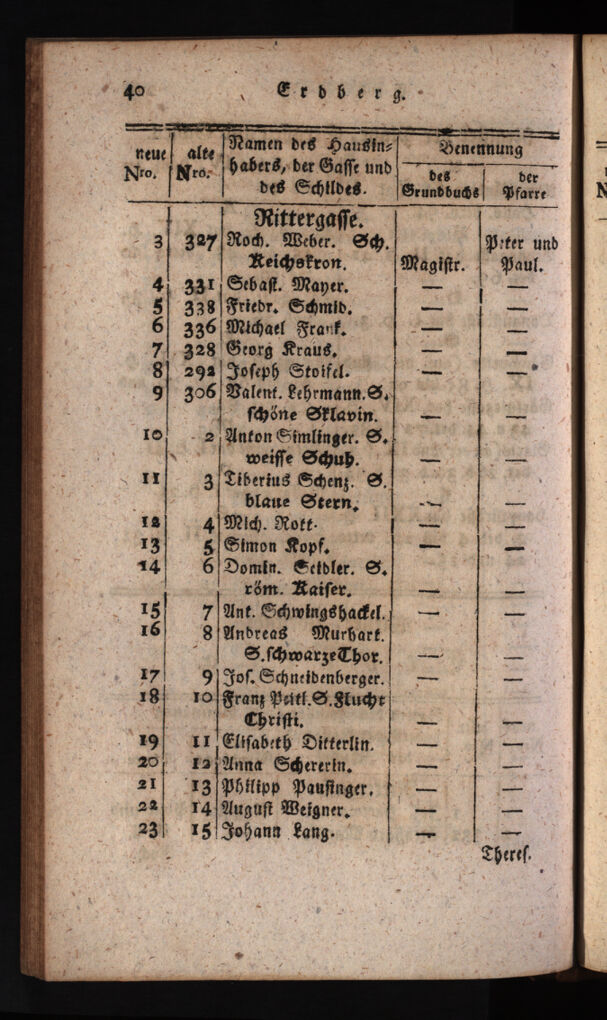 40 Erdberg.
neue Nro. alte Nro. Namen des Hausin- Benennung
habers, der Gasse und des der
des Schildes. Grundbuchs Pfarre
Rittergasse.
3 327 Roch. Weber. Sch. Peter und
Reichskron. Magistr. Paul.
4 331 Sebast. Mayer. — —
5 338 Friedr. Schmid. — —
6 336 Michael Frank. — —
7 328 Georg Kraus. — —
8 292 Joseph Stoifel. — —
9 306 Valent. Lehrmann. S.
schöne Sklavin. — —
10 2 Anton Simlinger. S.
weisse Schuh. — —
11 3 Tiberius Schenz. S.
blaue Stern. — —
12 4 Mich. Rott. — —
13 5 Simon Kopf. — —
14 6 Domin. Seidler. S.
röm. Kaiser. — —
15 7 Ant. Schwingshackel. — —
16 8 Andreas Murhart.
S. schwarze Thor. — —
17 9 Jos. Schneidenberger. — —
18 10 Franz Peitl. S. Flucht
Christi. — —
19 11 Elisabeth Ditterlin. — —
20 12 Anna Schererin. — —
21 13 Philipp Pausinger. — —
22 14 August Weigner. — —
23 15 Johann Lang. — —
Theres.